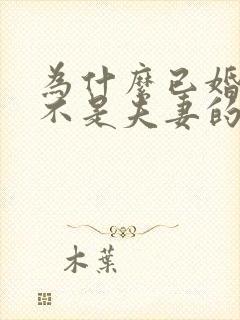 為什麼已婚
不是夫妻的
木葉